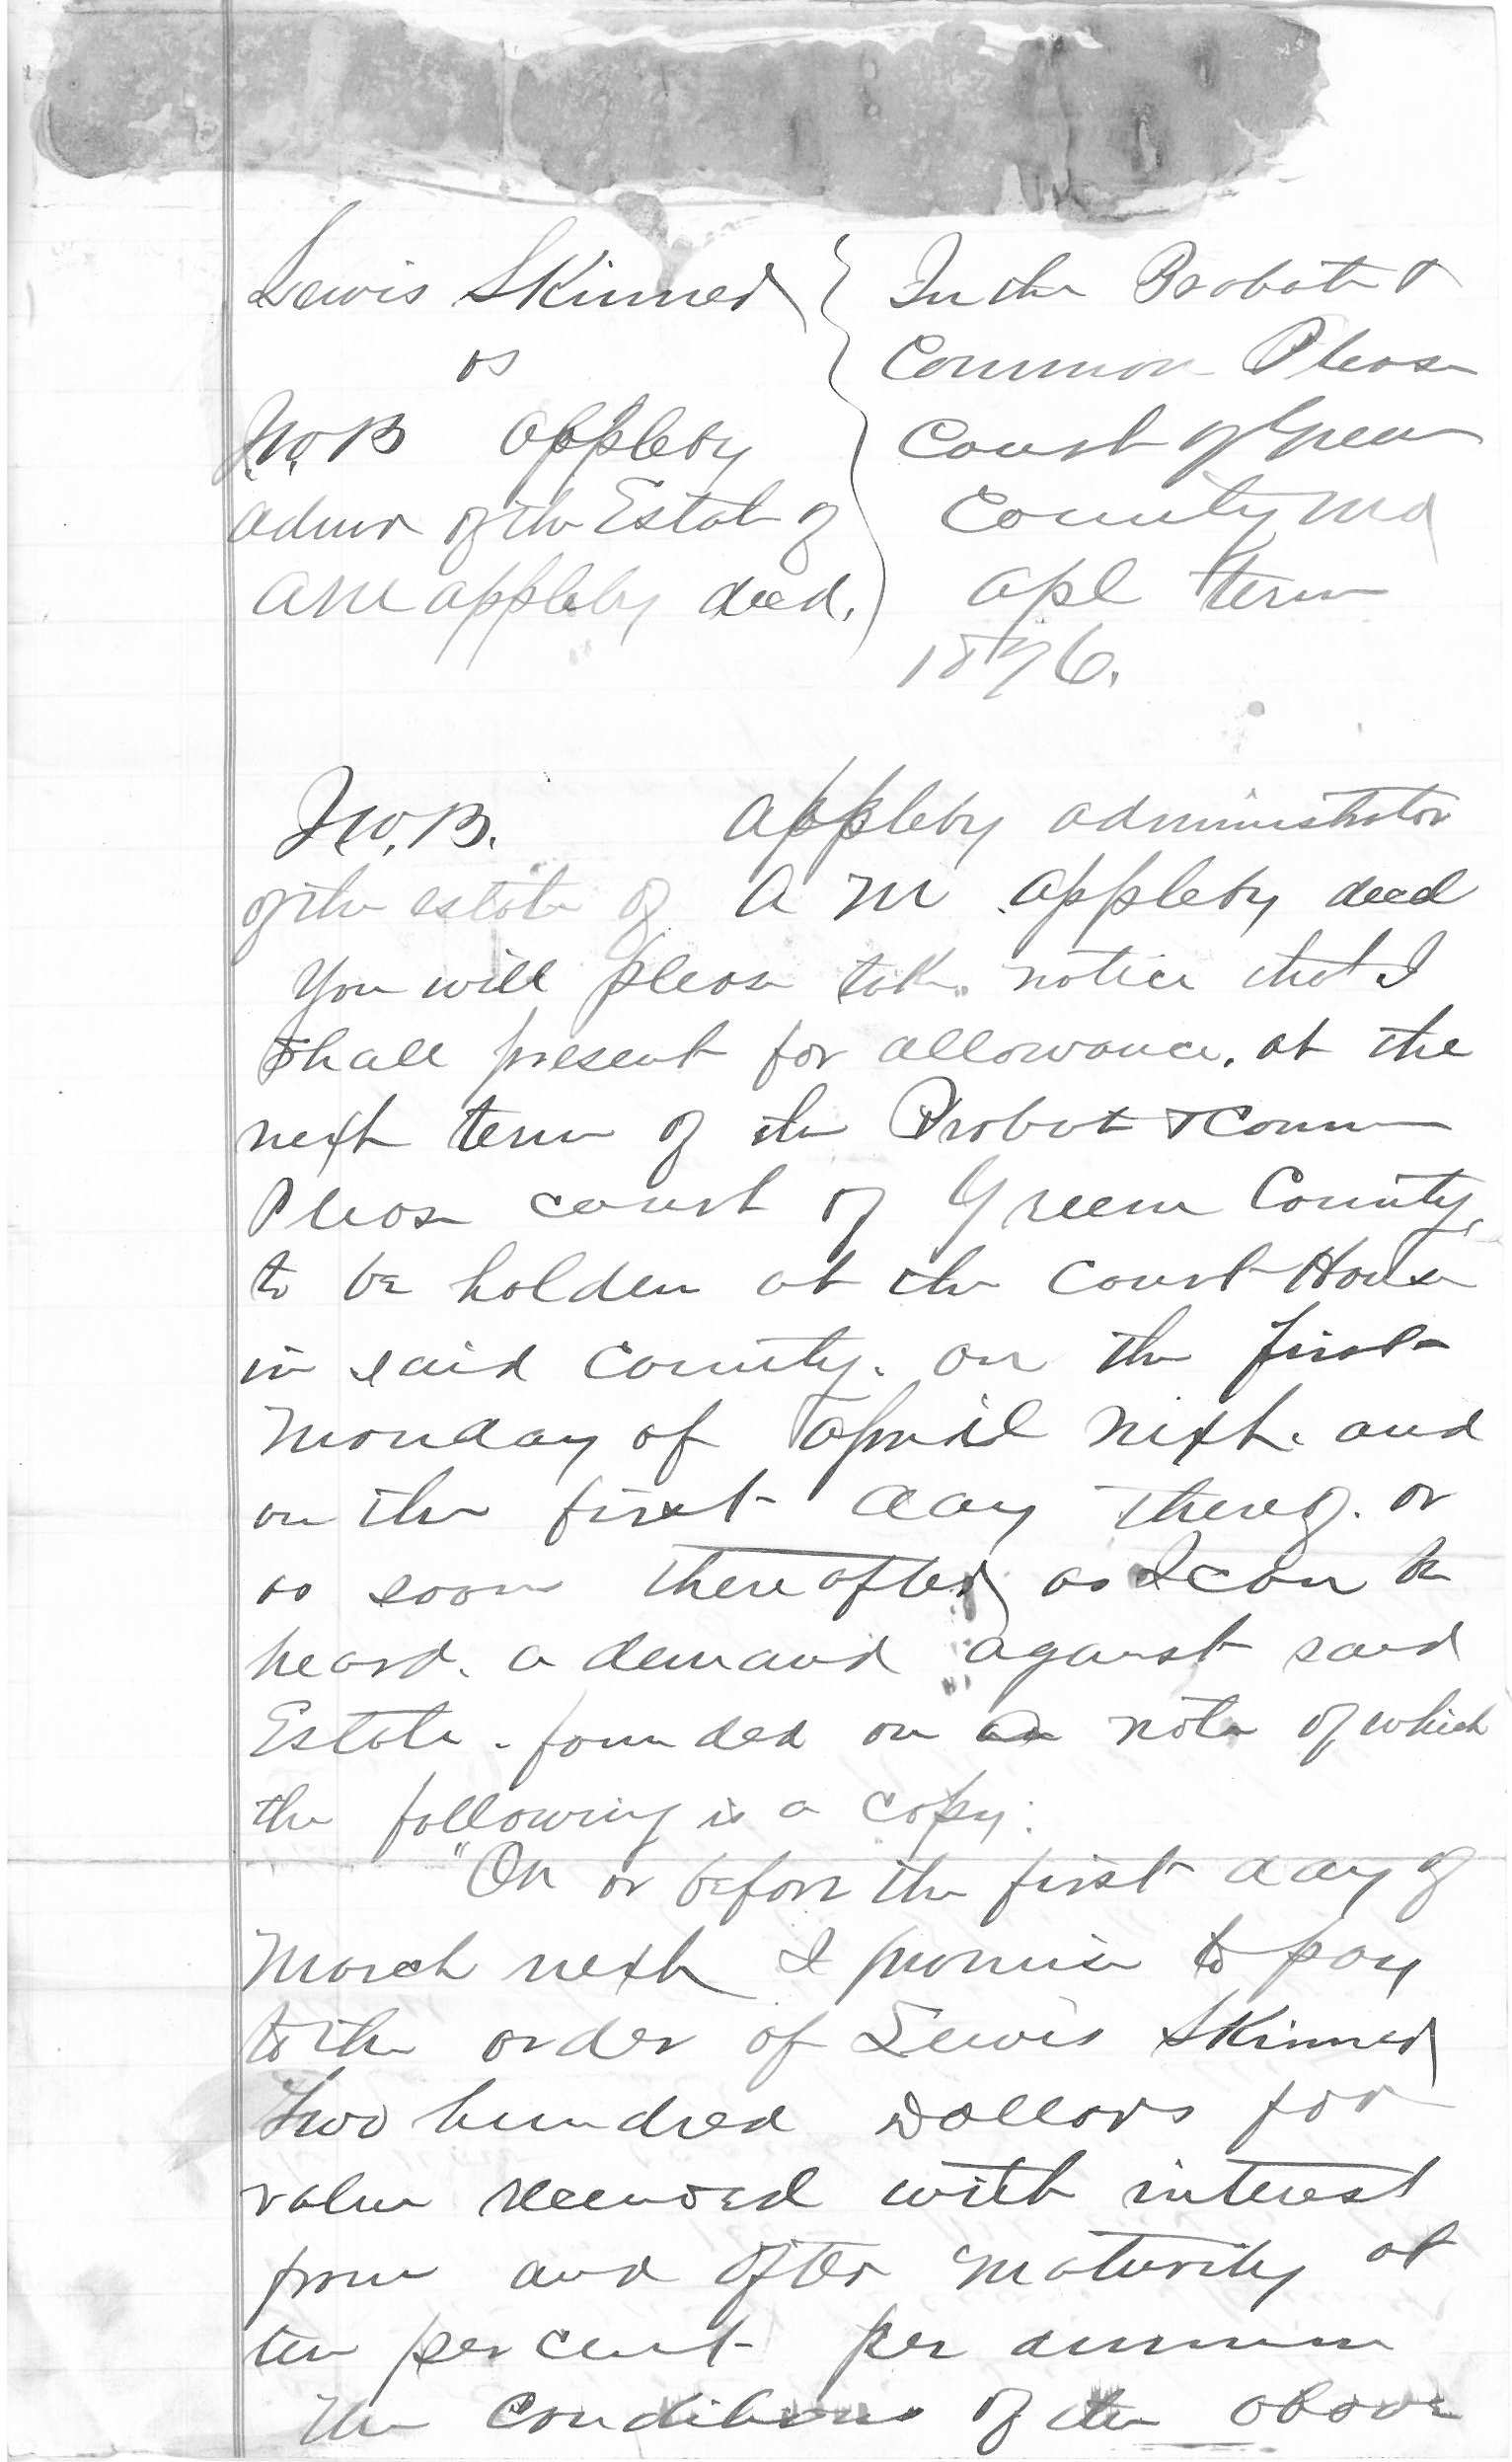 Lewis Skinner
vs
J.W.B Appleby
Admr of the Estate of
A M Appleby decd.
In the Probate &
Common Pleas
Court of Green
County Mo
Apl term
1876.
J.W.B. Appleby administrator
of the estate of A M Appleby decd
You will please take notice that I
shall present for allowance. at the
next term of the Probate & Comm
Pleas court of Greene County,
to be holden at the Court House
in said County. on the first
Monday of April next. and
on the first day thereof. or
as soon thereafter as I can be
heard. a demand against said
Estate. founded on a note of which
the following is a copy:
"On or before the first day of
March next I promise to pay
to the order of Lewis Skinner
Two hundred Dollars for
value received with interest
from and after maturity at
ten per cent per annum
The conditions of the above